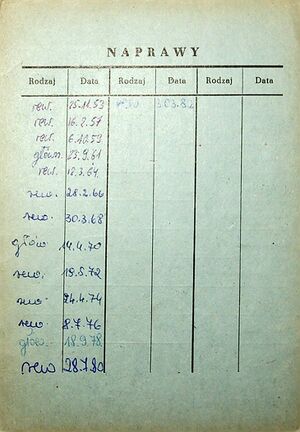 NAPRAWY
Rodzaj Data Rodzaj Data Rodzaj Data
rew. 25.11.53 rew 3.03.82
rew. 16.2.57
rew. 6.10.59
główn. 23.9.61
rew. 12.3.64
rew. 28.2.66
rew. 30.3.68
głów 14.4.70
rew. 19.5.72
rew. 24.4.74
rew 8.7.76
głów. 18.9.78
rew 28.7.80